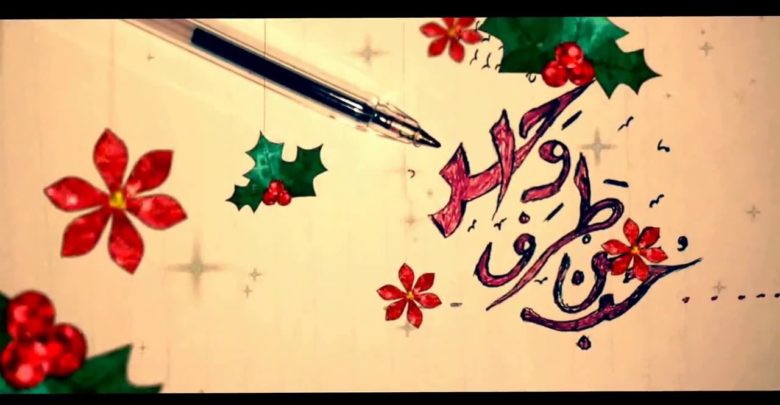 حُب من طرف واحد